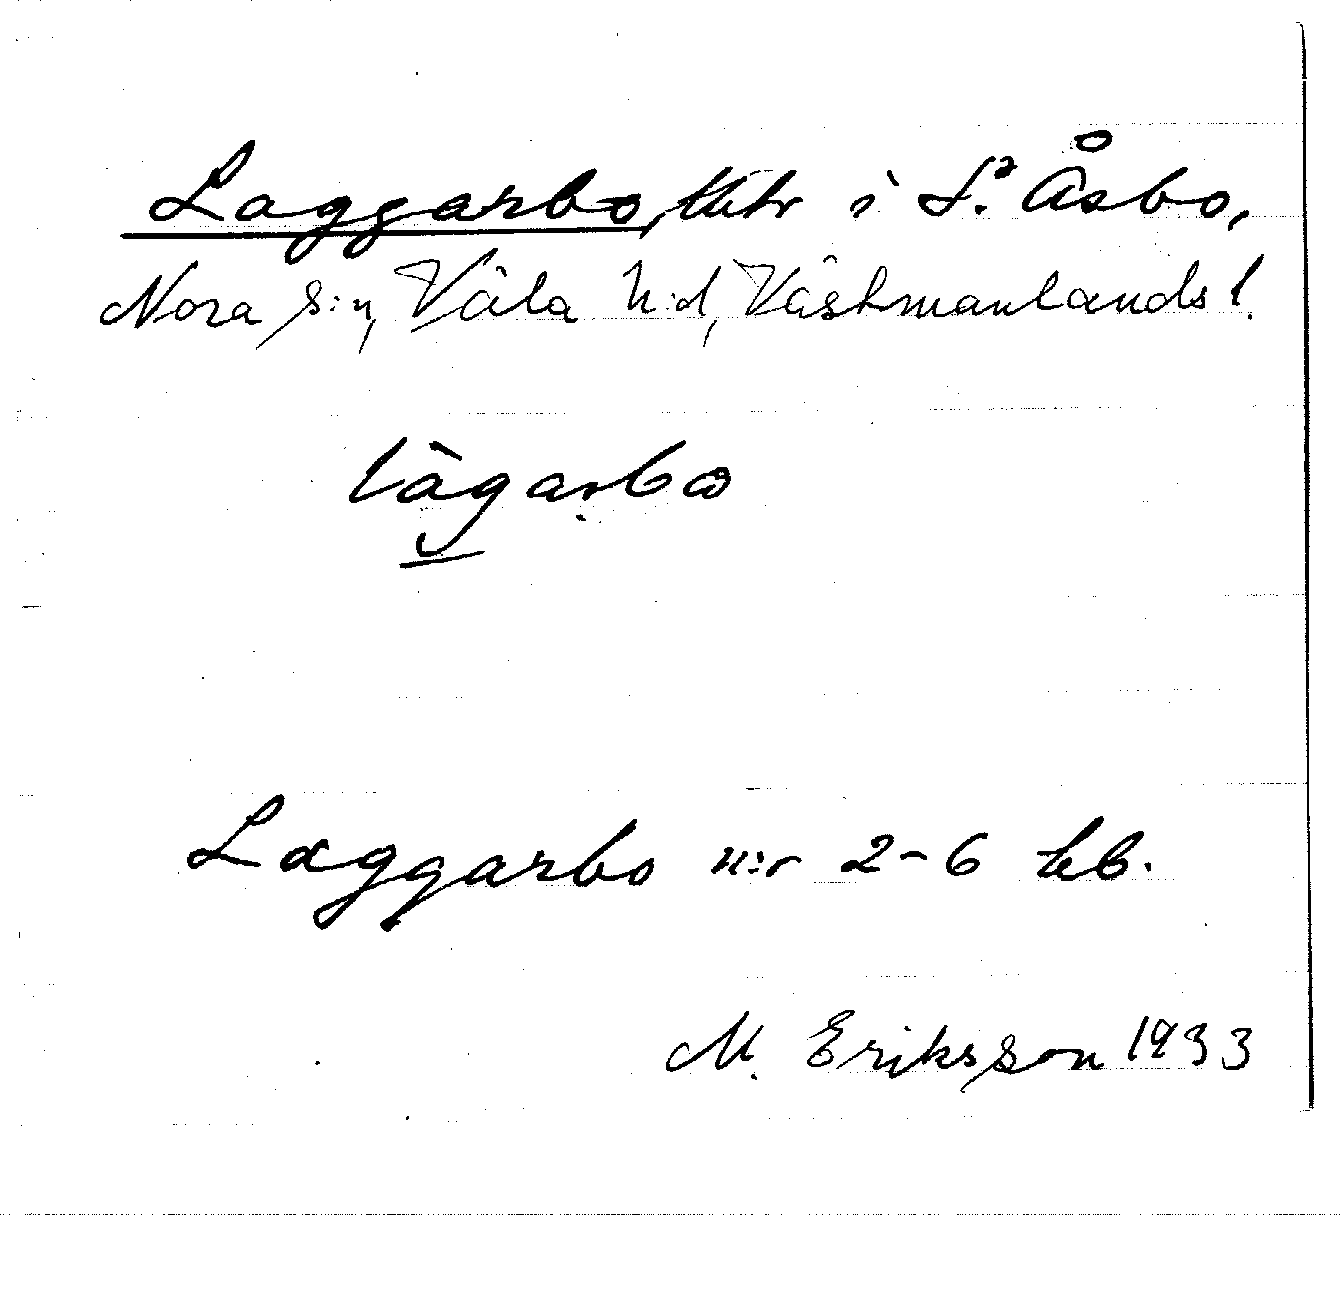 Laggarbo, i S:a Åsbo,
Nora s:n, Våla h:d, Västmanlands l.
làgarbo
Laggarbo n:r 2-6 kb.
M. Eriksson 1933